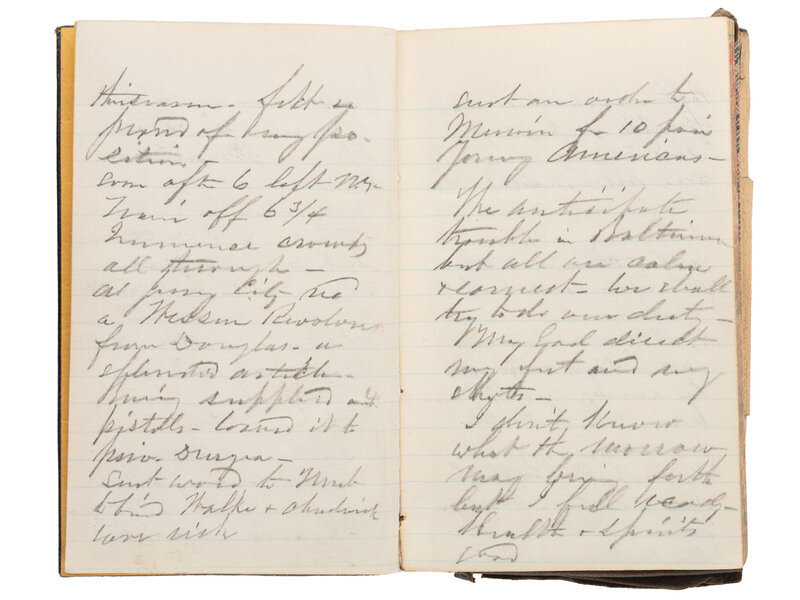 this season - felt so
proud of my po-
sition -
soon after 6 left N.Y.
Train off 6 3/4
Immense crowds
all through -
at Jersey City rcd
a Wesson Revolver
from Douglas - a
splendid article -
being supplied with
pistols - loaned it to
priv.
sent word to
Walke + Chadwick
were sick
sent an order to
for 10 pair
Young Americans -
We anticipate
trouble in Baltimore
but all are calm
+ earnest - We shall
try to do our duty -
May God direct
my feet and my
shots -
I don't know
what the morrow
may bring forth
but I feel ready -
Health + spirits
good